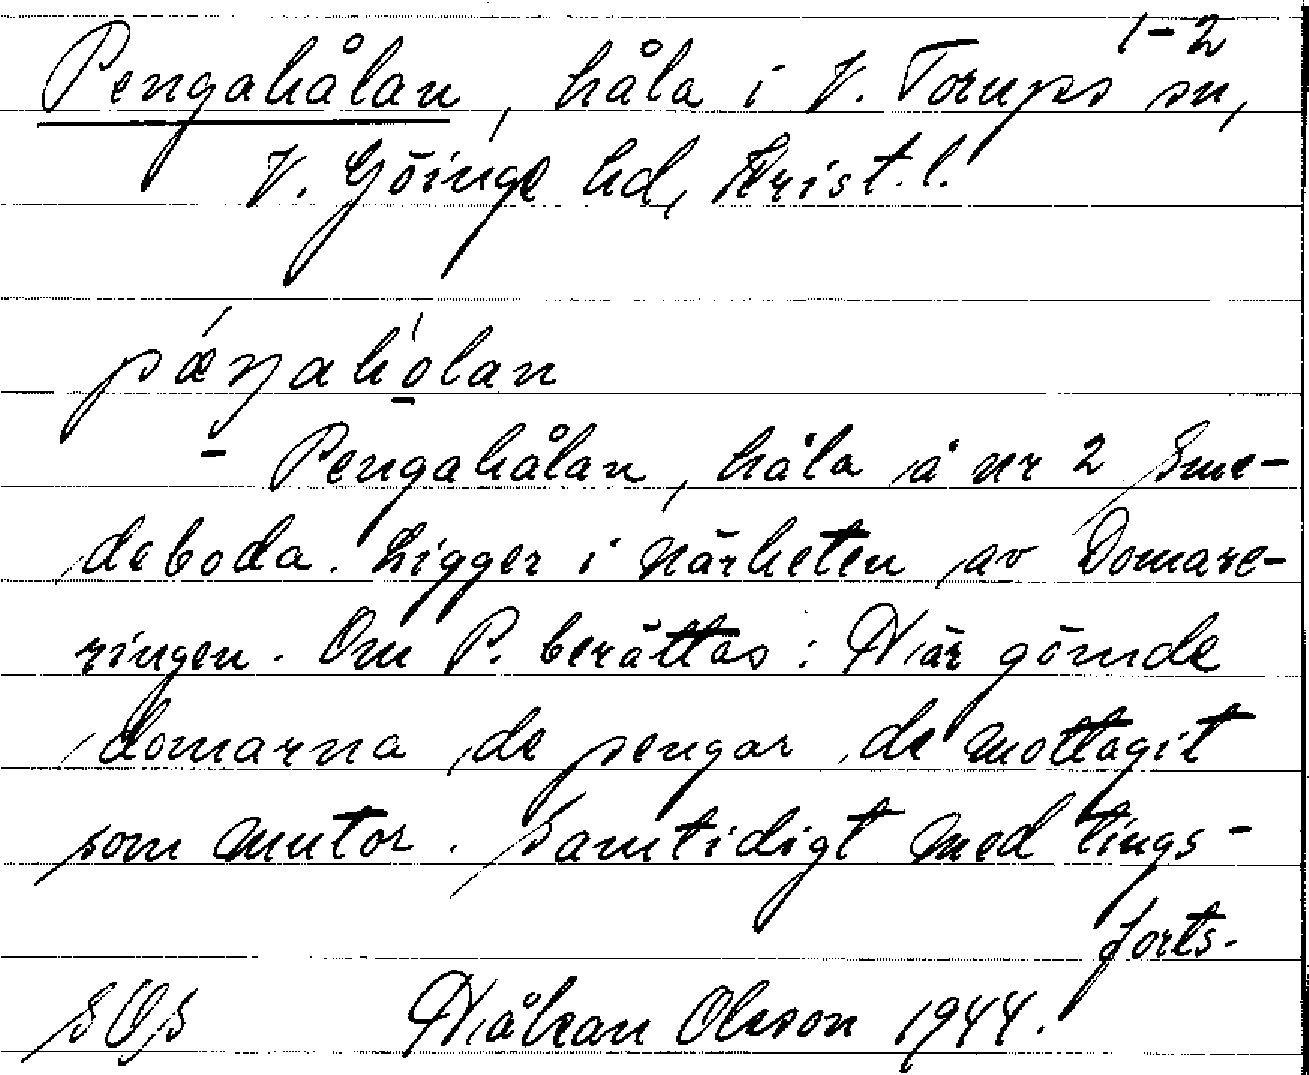 1-2
Pengahålan, håla i V. Torups sn,
V. Göinge hd, Krist. l.
pæ´ŋah´o̱lan
- Pengahålan, håla å nr 2 Sme-
deboda. Ligger i närheten av Domare-
ringen. Om P. berättas: Här gömde
domarna de pengar de mottagit
som mutor. Samtidigt med tings-
forts.
SOS Håkan Olsson 1944.